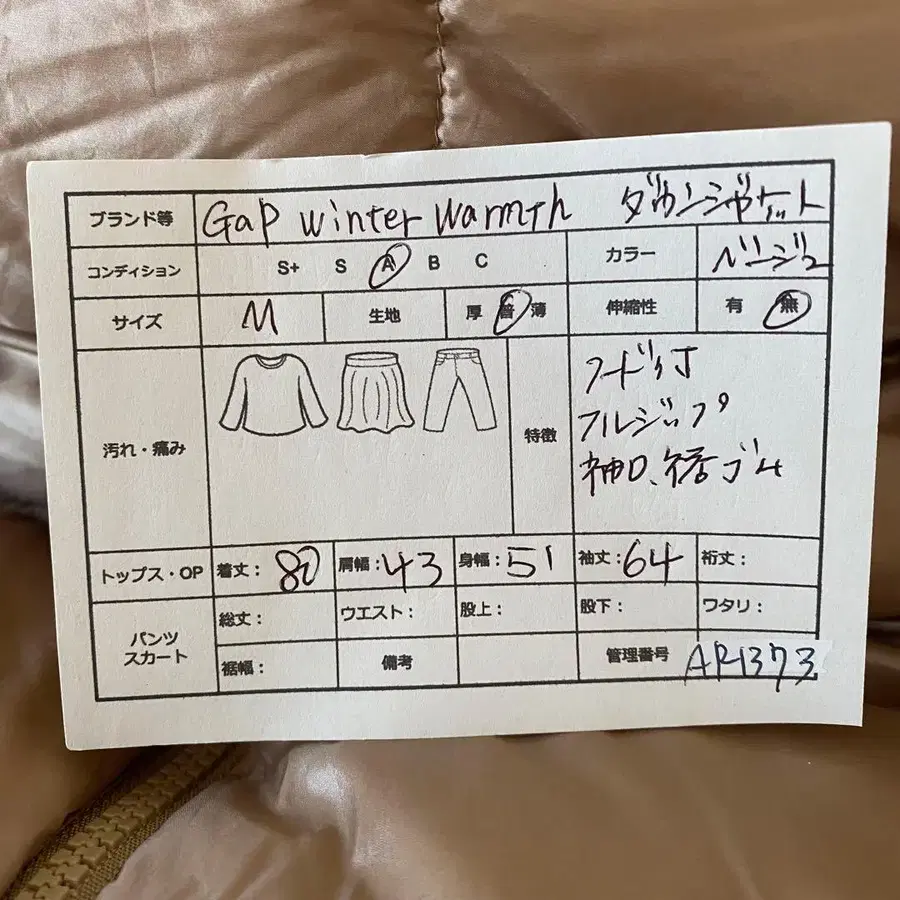 ブランド等 Gap Winter Warmth ダウンジャケット
コンディション S+ S A B C カラー ベージュ
サイズ M 生地 厚 普 薄 伸縮性 有 無
汚れ・痛み 特徴
フード付
フルジップ
袖口、裾ゴム
トップス・OP 着丈: 80 肩幅: 43 身幅: 51 袖丈: 64 裄丈:
パンツ
スカート
総丈: ウエスト: 股上: 股下: ワタリ:
裾幅: 備考 管理番号 AR1373